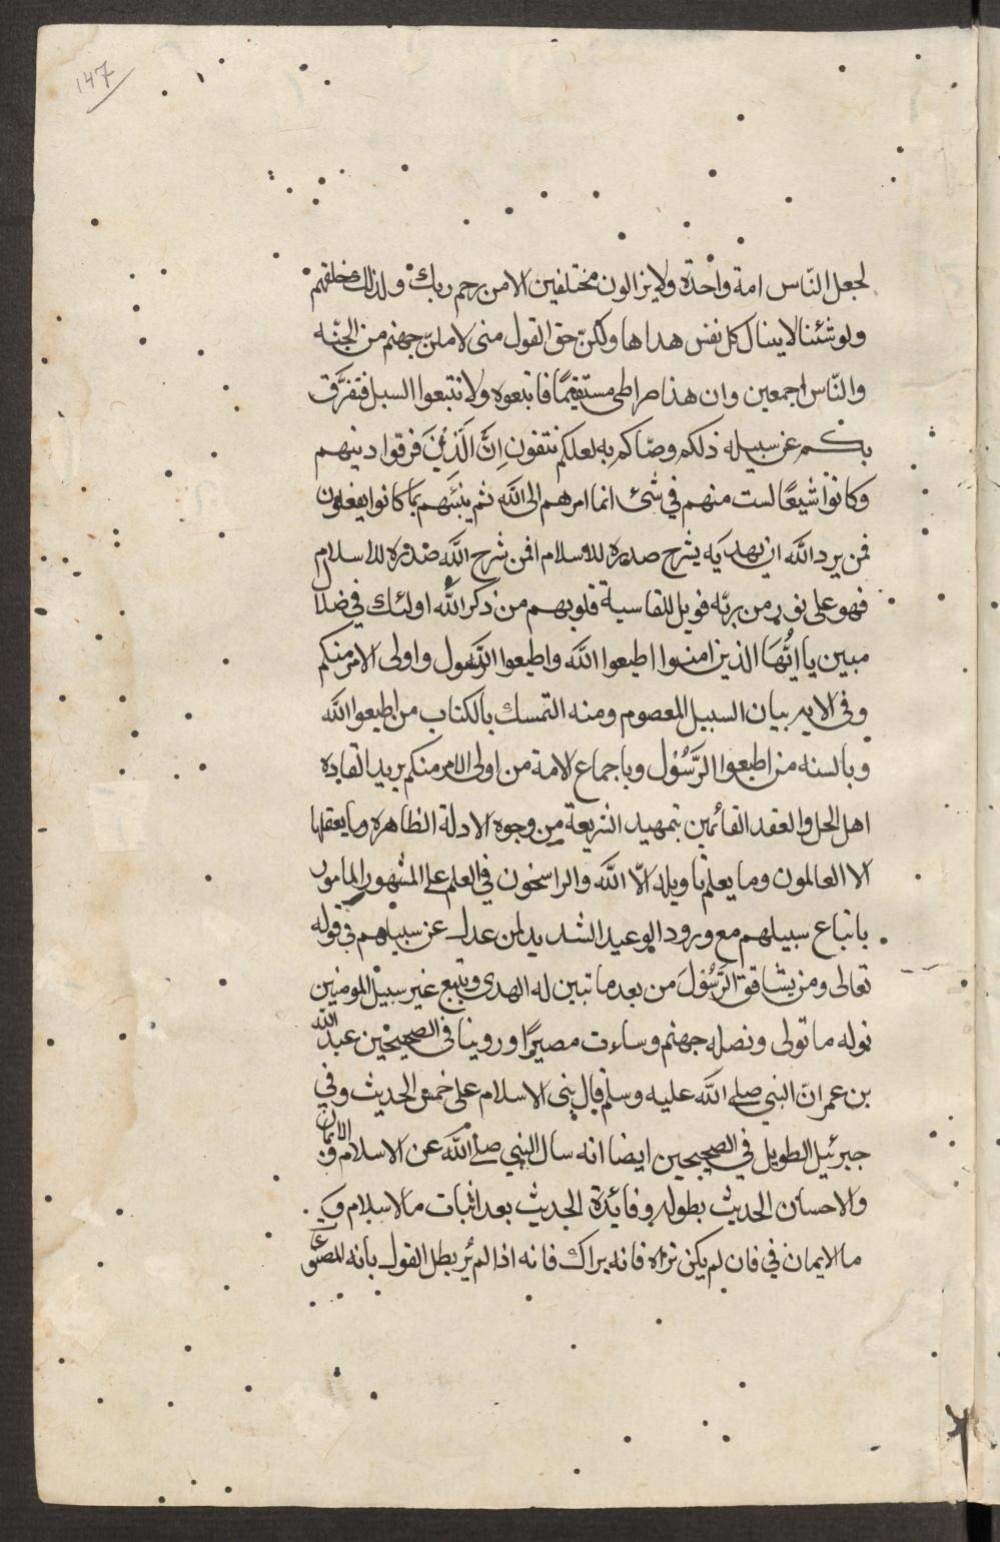 147
لجعل النّاس امة واحدة ولايزالون مختلفين الامن رحم ربك ولذلك خلقهم
ولو شئنا لايناكل نفس هداها ولكن حق القول منى لاملئن جهنم من الجنّه
والنّاس اجمعين وان هذا صراطى مستقيمًا فاتبعوه ولا تتبعوا السبل فتفرّق
بكم عن سبيله ذلكم وصّاكم به لعلكم تتقون اِنَّ الَّذِينَ فرقوا دينهم
وكانوا شيعًا لست منهم في شئ انما امرهم الى الله ثم ينبّئهم بما كانوا يفعلون
فمن يرد الله ان يهديه يشرح صدره للاسلام افمن شرح الله صدره للاسلام
فهو على نور من ربّه فويل للقاسية قلوبهم من ذكر الله اولئك في ضلا
مبين يا ايُّهَا الذين امنوا اطيعوا الله واطيعوا الرسول واولى الامر منكم
وفى الايه بيان السبيل المعصوم ومنه التمسك بالكتاب من اطيعوا الله
وبالسنه من اطيعوا الرَّسُوْل وباجماع الامة من اولى الامر منكم يريد القاده
اهل الحل والعقد القائمين بتمهيد الشريعة من وجوه الادلة الظاهره وما يعقلها
الا العالمون وما يعلم تاويله الّا الله والراسخون في العلم على المشهور المامور
باتباع سبيلهم مع ورود الوعيد الشديد لمن عدل عن سبيلهم فى قوله
تعالى ومن يشاقق الرَّسُوْلَ من بعد ما تبين له الهدى ويتبع غير سبيل المومنين
نوله ما تولى ونصله جهنم وساءت مصيرًا وروينا فى الصحيحين عبد الله
بن عمر ان النبي صلى الله عليه وسلم قال بنى الاسلام على خمس الحديث وفي
جبرئيل الطويل في الصحيحين ايضا انه سال النبي صلى الله عن الاسلام والايمان
والاحسان الحديث بطوله وفائدة الحديث بعد اثبات ما لاسلام و
ما الايمان في فان لم يكن تراه فانه يراك فانه اذا لم يُر بطل القول بانه